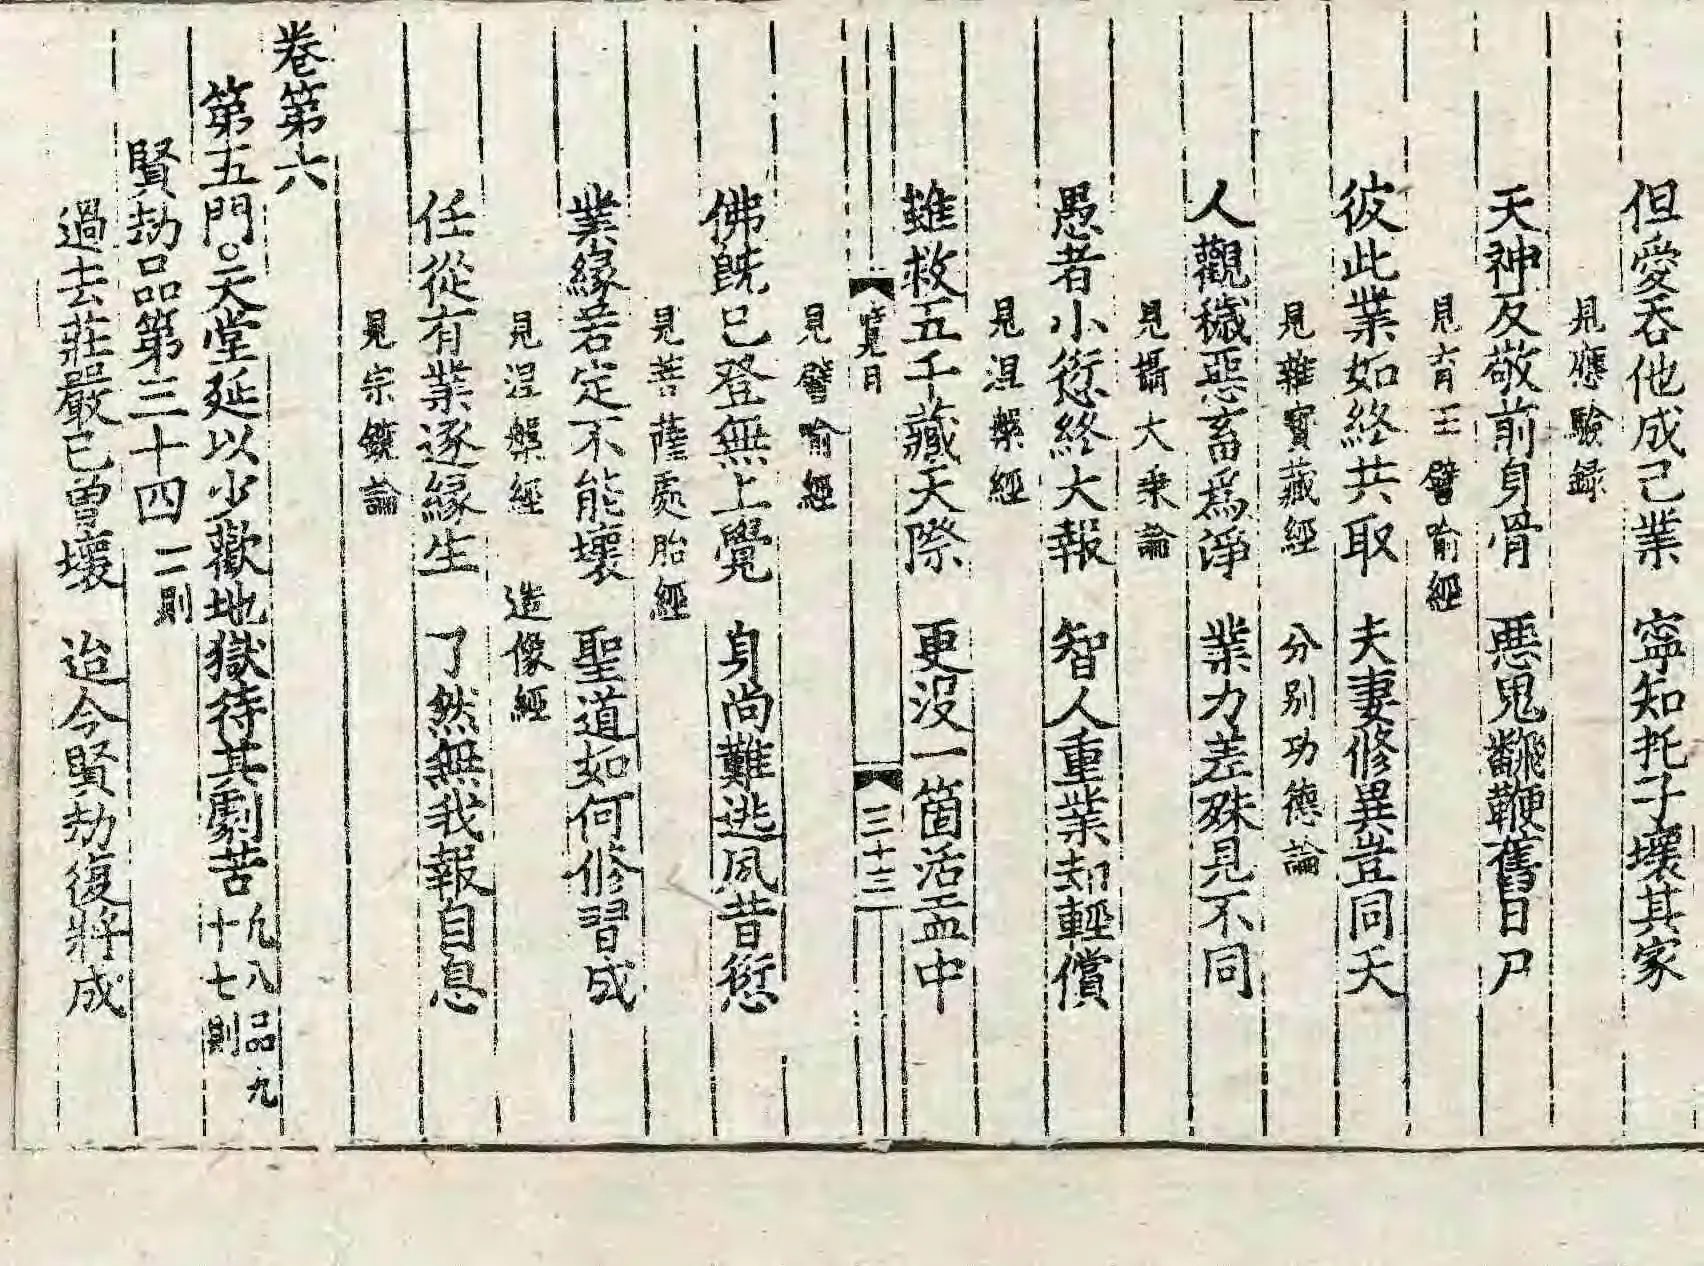 但愛呑他成己業　寧知托子壞其家
見應驗録
天神反敬前身骨　惡鬼飜鞭舊日尸
見育王譬喻經
彼此業如終共取　夫妻修異豈同天
見雜寶藏經　分别功德論
人觀穢惡畜爲淨　業力差殊見不同
見攝大乗論
愚者小愆終大報　智人重業却輕償
見涅槃經
雖救五千藏天際　更没一箇活盂中
三十三
見譬喻經
佛旣已登無上覺　身尚難逃夙昔愆
見菩薩處胎經
業緣若定不能壞　聖道如何修習成
見涅槃經　造像經
任從有業逐緣生　了然無我報自息
見宗鏡論
卷第六
第五門○天堂延以少歡地獄待其劇苦 凢八品九十七則
賢劫品第三十四 二則
過去莊嚴已曾壞　迨今賢劫復將成